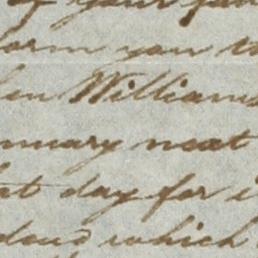 of your
form you
Williams
nuary next
at day for
which